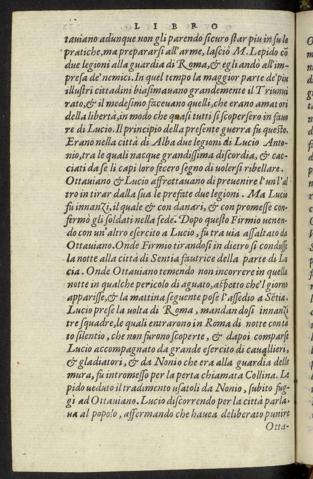 LIBRO
tauiano adunque non gli parendo sicuro star piu in su le
pratiche, ma prepararsi all'arme, lasciò M. Lepido cō
due legioni alla guardia di Roma, & egli andò all'im-
presa de'nemici. In quel tempo la maggior parte de'piu
illustri cittadini biasimauano grandemente il Triumui
rato, & il medesimo faceuano quelli, che erano amatori
della libertà, in modo che quasi tutti si scopersero in fauo
re di Lucio. Il principio della presente guerra fu questo.
Erano nella città di Alba due legioni di Lucio Anto-
nio, tra le quali nacque grandissima discordia, & cac-
ciati da se li capi loro fecero segno di uolersi ribellare.
Ottauiano & Lucio affrettauano di preuenire l'un l'al
tro in tirar dalla sua le prefate due legioni. Ma Lucio
fu innanzi, il quale & con danari, & con promesse con-
fermò gli soldati nella fede. Dopo questo Firmio uenen-
do con un'altro esercito a Lucio, fu tra uia assaltato da
Ottauiano. Onde Firmio tirandosi in dietro si condusse
la notte alla città di Sentia fautrice della parte di Lu
cia. Onde Ottauiano temendo non incorrere in quella
notte in qualche pericolo di aguato, aspetto che'l giorno
apparisse, & la mattina seguente pose l'assedio a Sētia.
Lucio prese la uolta di Roma, mandandosi innanzi
tre squadre, le quali entrarono in Roma di notte con tā
to silentio, che non furono scoperte, & dapoi comparse
Lucio accompagnato da grande esercito di cauallieri,
& gladiatori, & da Nonio che era alla guardia delle
mura, fu intromesso per la porta chiamata Collina. Le
pido ueduto il tradimento usatoli da Nonio, subito fug
gì ad Ottauiano. Lucio discorrendo per la città parla-
ua al popolo, affermando che hauea deliberato punire
Otta-